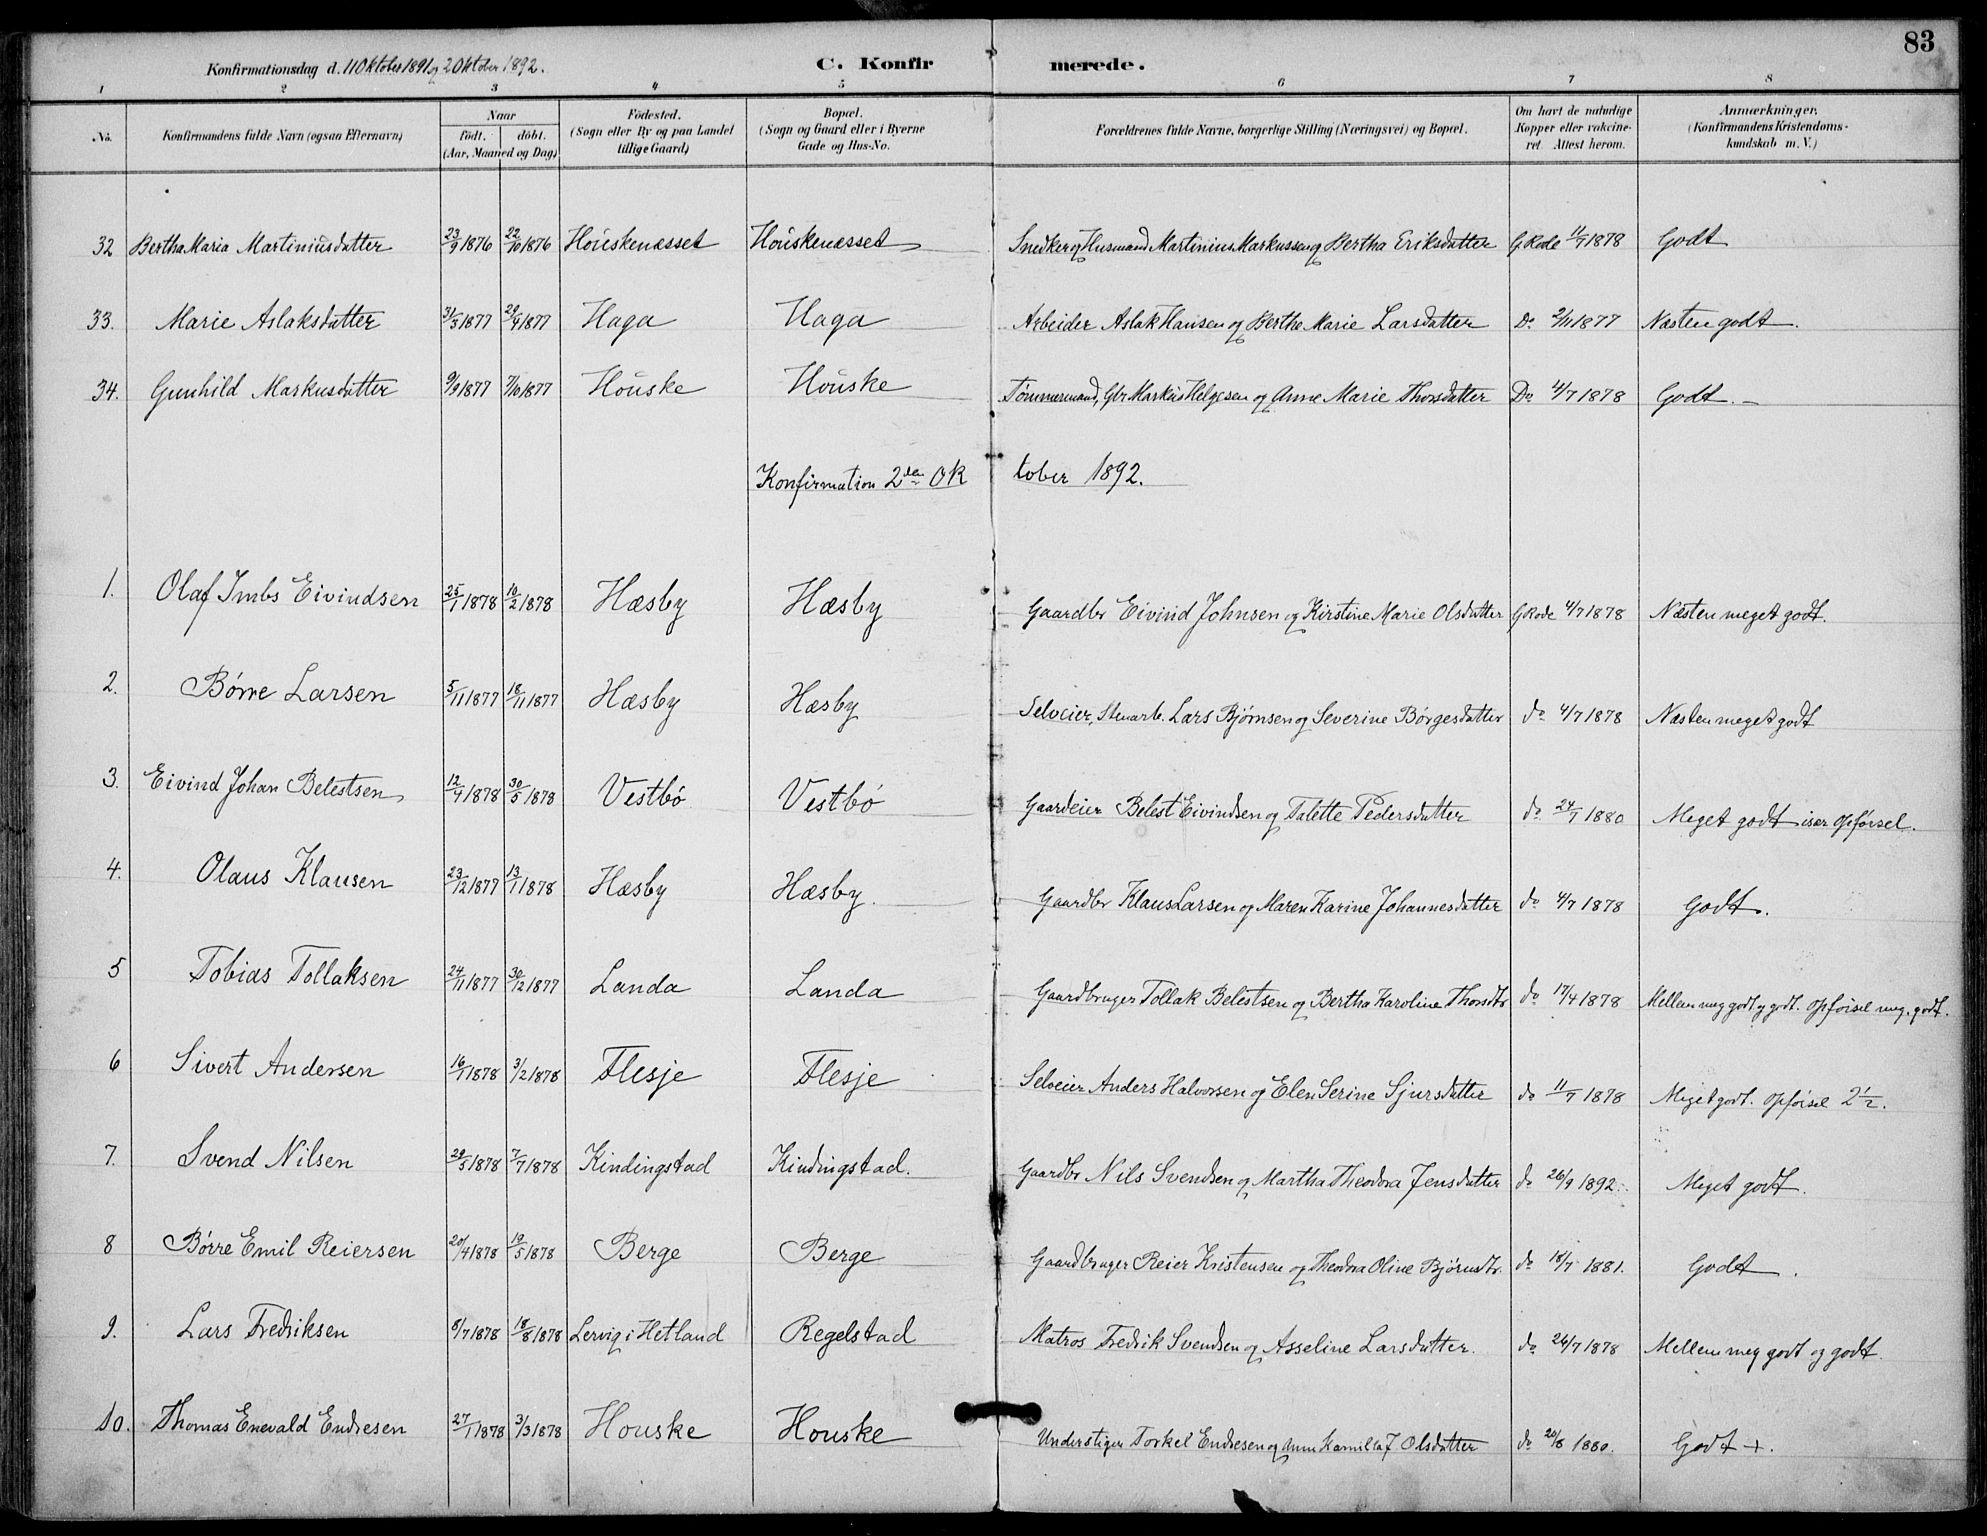 83
Konfirmationsdag d. 11 Oktober 1891 og 2 Oktober 1892.
C. Konfirmerede.
1 2 3 4 5 6 7 8
No. Konfirmandens fulde Navn (ogsaa Efternavn) Naar født. døbt. (Aar, Maaned og Dag) Fødested. (Sogn eller By og paa Landet tillige Gaard) Bopæl. (Sogn og Gaard eller i Byerne Gade og Hus-No. Forældrenes fulde Navne, borgerlige Stilling (Næringsvei) og Bopæl. Om havt de naturlige Kopper eller vakcineret Attest herom. Anmærkninger. (Konfirmandens Kristendomskundskab m. V.)
32 Bertha Maria Martiniusdatter 23/9 1876 22/10 1876 Houskenæsset Houskenæsset Snedker og Husmand Martinius Markussen og Bertha Eriksdatter G Rode 11/7 1878 Godt
33. Marie Aslaksdatter 31/3 1877 29/4 1877 Haga Haga Arbeider Aslak Hansen og Berthe Marie Larsdatter Do 2/11 1877 Næsten godt.
34. Gunhild Markusdatter 9/9 1877 7/10 1877 Houske Houske Tømmermand, Gbr Markus Helgesen og Anne Marie Thorsdatter Do 4/7 1878 Godt.
Konfirmation 2den Oktober 1892.
1. Olaf Imbs Eivindsen 25/1 1878 10/2 1878 Hæsby Hæsby Gaardbr Eivind Johnsen og Kirstine Marie Olsdatter G Rode 4/7 1878 Næsten meget godt.
2. Børre Larsen 5/11 1877 18/11 1877 Hæsby Hæsby Selveier, Stenarb. Lars Bjørnsen og Severine Børgesdatter do 4/7 1878 Næsten meget godt
3. Eivind Johan Belestsen 12/4 1878 30/5 1878 Vestbø Vestbø Gaardeier Belest Eivindsen og Talette Pedersdatter do 24/7 1880 Meget godt især Opførsel.
4. Olaus Klausen 23/12 1877 13/1 1878 Hæsby Hæsby. Gaardbr Klaus Larsen og Maren Karine Johannesdatter do 4/7 1878 Godt.
5 Tobias Tollaksen 24/11 1877 30/12 1877 Landa Landa Gaardbruger Tollak Belestsen og Bertha Karoline Thorsdtr do 17/4 1878 Mellem meg godt og godt. Opførsel meg. godt.
6 Sivert Andersen 16/1 1878 3/2 1878 Flesje Flesje Selveier Anders Halvorsen og Elen Serine Sjursdatter do 11/7 1878 Meget godt. Opførsel 2 1/2.
7. Svend Nilsen 29/5 1878 7/7 1878 Kindingstad Kindingstad. Gaardbr Nils Svendsen og Martha Theodora Jensdatter do 26/9 1892. Meget godt.
8 Børre Emil Reiersen 20/4 1878 19/5 1878 Berge Berge Gaardbruger Reier Kristensen og Theodora Oline Bjørnsdtr. do 18/7 1881. Godt.
9. Lars Fredriksen 8/7 1878 18/8 1878 Lervig i Hetland Regelstad Matros Fredrik Svendsen og Asseline Larsdatter. do 26/7 1878 Mellem meg godt og godt.
10. Thomas Enevald Endresen 27/1 1878 3/3 1878 Houske Houske Understiger Torkel Endresen og Anne Kamilla J Olsdatter do 20/8 1880. Godt +.